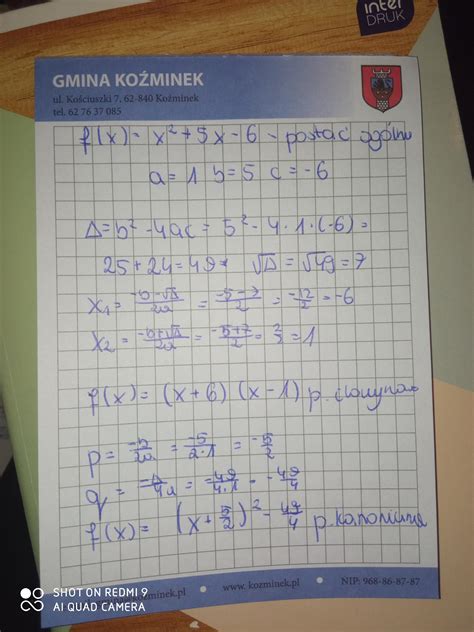 inter
DRUK
GMINA KOŹMINEK
ul. Kościuszki 7, 62-840 Koźminek
tel. 62 76 37 085
f(x) = x² + 5x - 6 - postać ogólna
a = 1 b = 5 c = -6
Δ = b² - 4ac = 5² - 4 · 1 · (-6) =
25 + 24 = 49 √Δ = √49 = 7
x₁ = (-b-√Δ)/2a = (-5-7)/2 = -12/2 = -6
x₂ = (-b+√Δ)/2a = (-5+7)/2 = 2/2 = 1
f(x) = (x+6) (x-1) p. iloczynowa
p = -b/2a = -5/2·1 = -5/2
q = -Δ/4a = -49/4·1 = -49/4
f(x) = (x + 5/2)² - 49/4 p. kanoniczna
www.kozminek.pl NIP: 968-86-87-87
SHOT ON REDMI 9
AI QUAD CAMERA